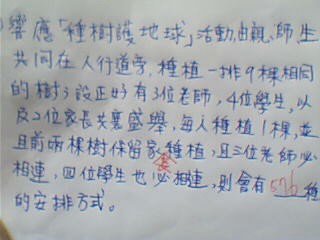 響應「種樹護地球」活動,由親、師、生
共同在人行道旁,種植一排9棵相同
的樹;設正好有3位老師,4位學生,以
及2位家長共襄盛舉,每人種植1棵,並
且前兩棵樹保留家長種植,且三位老師必
相連,四位學生也必相連,則會有576種
的安排方式。